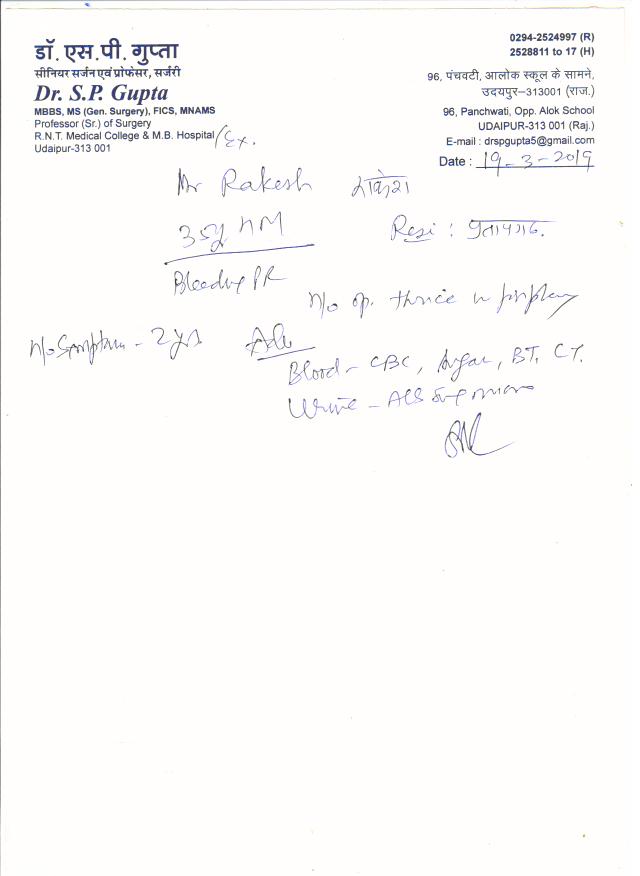 डॉ. एस.पी. गुप्ता
सीनियर सर्जन एवं प्रोफेसर, सर्जरी
Dr. S.P. Gupta
MBBS, MS (Gen. Surgery), FICS, MNAMS
Professor (Sr.) of Surgery
R.N.T. Medical College & M.B. Hospital /Ex.
Udaipur-313 001
0294-2524997 (R)
2528811 to 17 (H)
96, पंचवटी, आलोक स्कूल के सामने,
उदयपुर–313001 (राज.)
96, Panchwati, Opp. Alok School
UDAIPUR-313 001 (Raj.)
E-mail : drspgupta5@gmail.com
Date : 19-3-2019
Mr Rakesh राकेश
35y M
Resi : प्रतापगढ.
Bleeding PR
H/o op. thrice in
- 2 yrs
Adv
Blood - CBC, Sugar, BT, CT.
Urine -